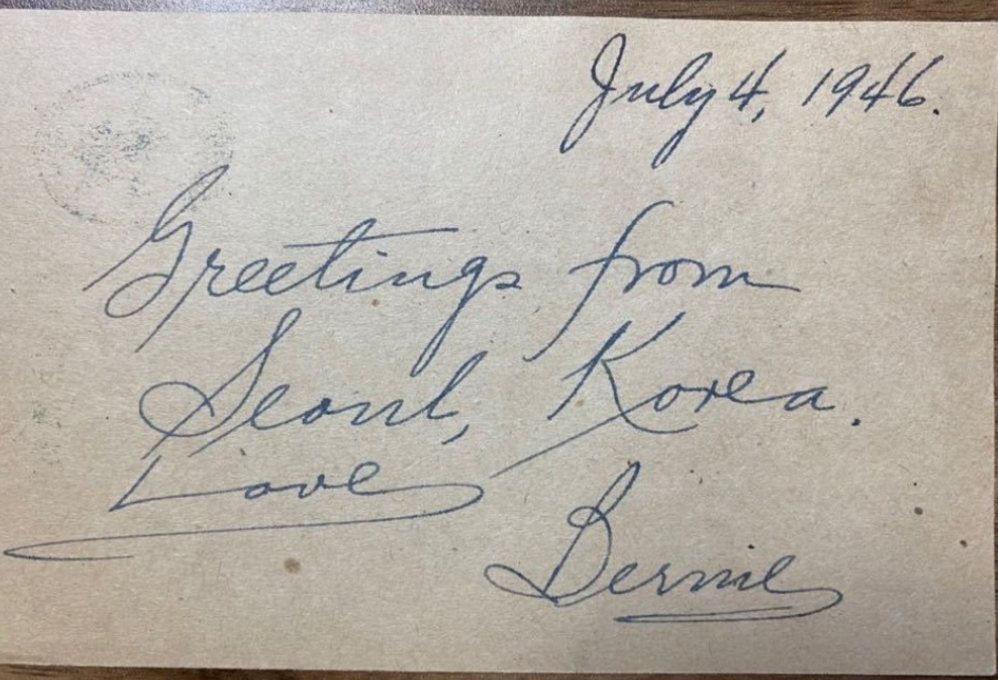 July 4, 1946.
Greetings from
Seoul, Korea.
Love
Bernie